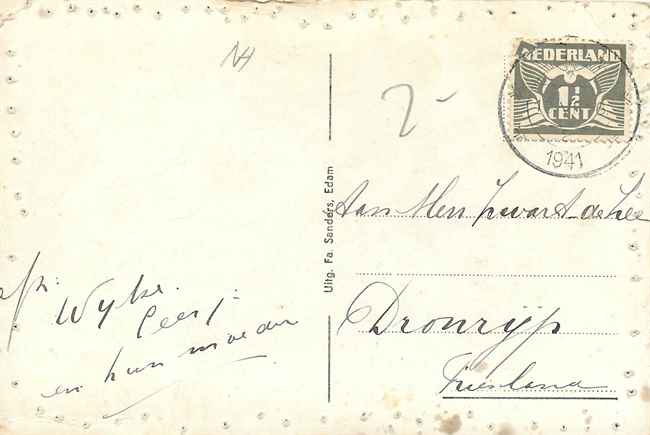 NH
2-
NEDERLAND
1½
CENT
1941
Uitg. Fa. Sanders, Edam
Aan Mevr Zwart-de Zee
Dronrijp
Friesland
afz:
Wytse.
en hun moeder